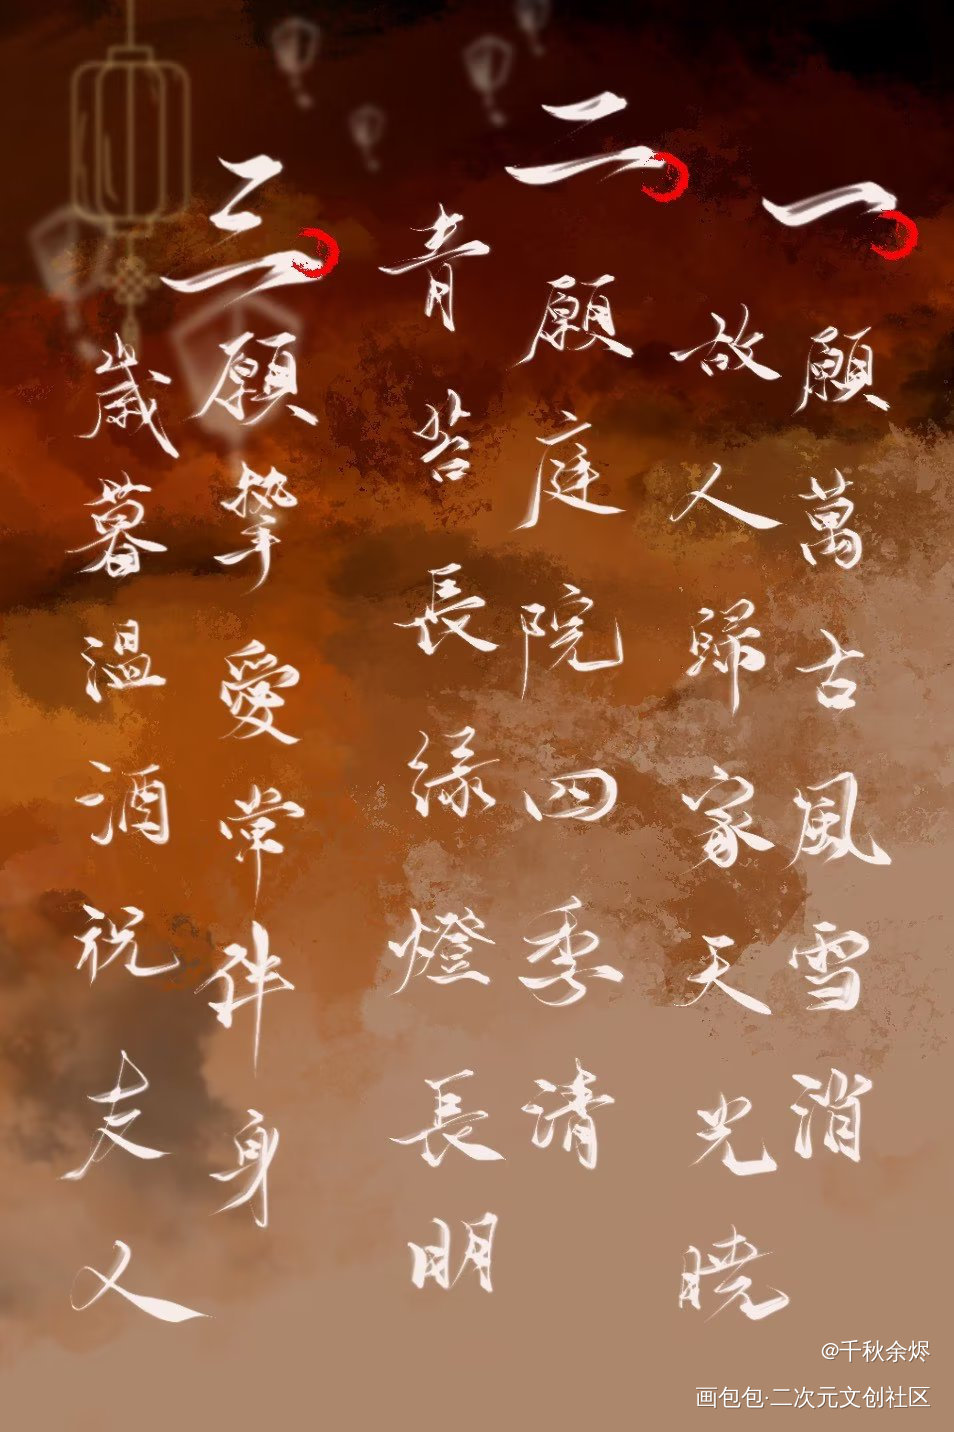 一願萬古風雪消
故人歸家天光曉
二願庭院四季清
青苔長綠燈長明
三願摯愛常伴身
歲暮溫酒祝友人
@千秋余烬
画包包·二次元文创社区